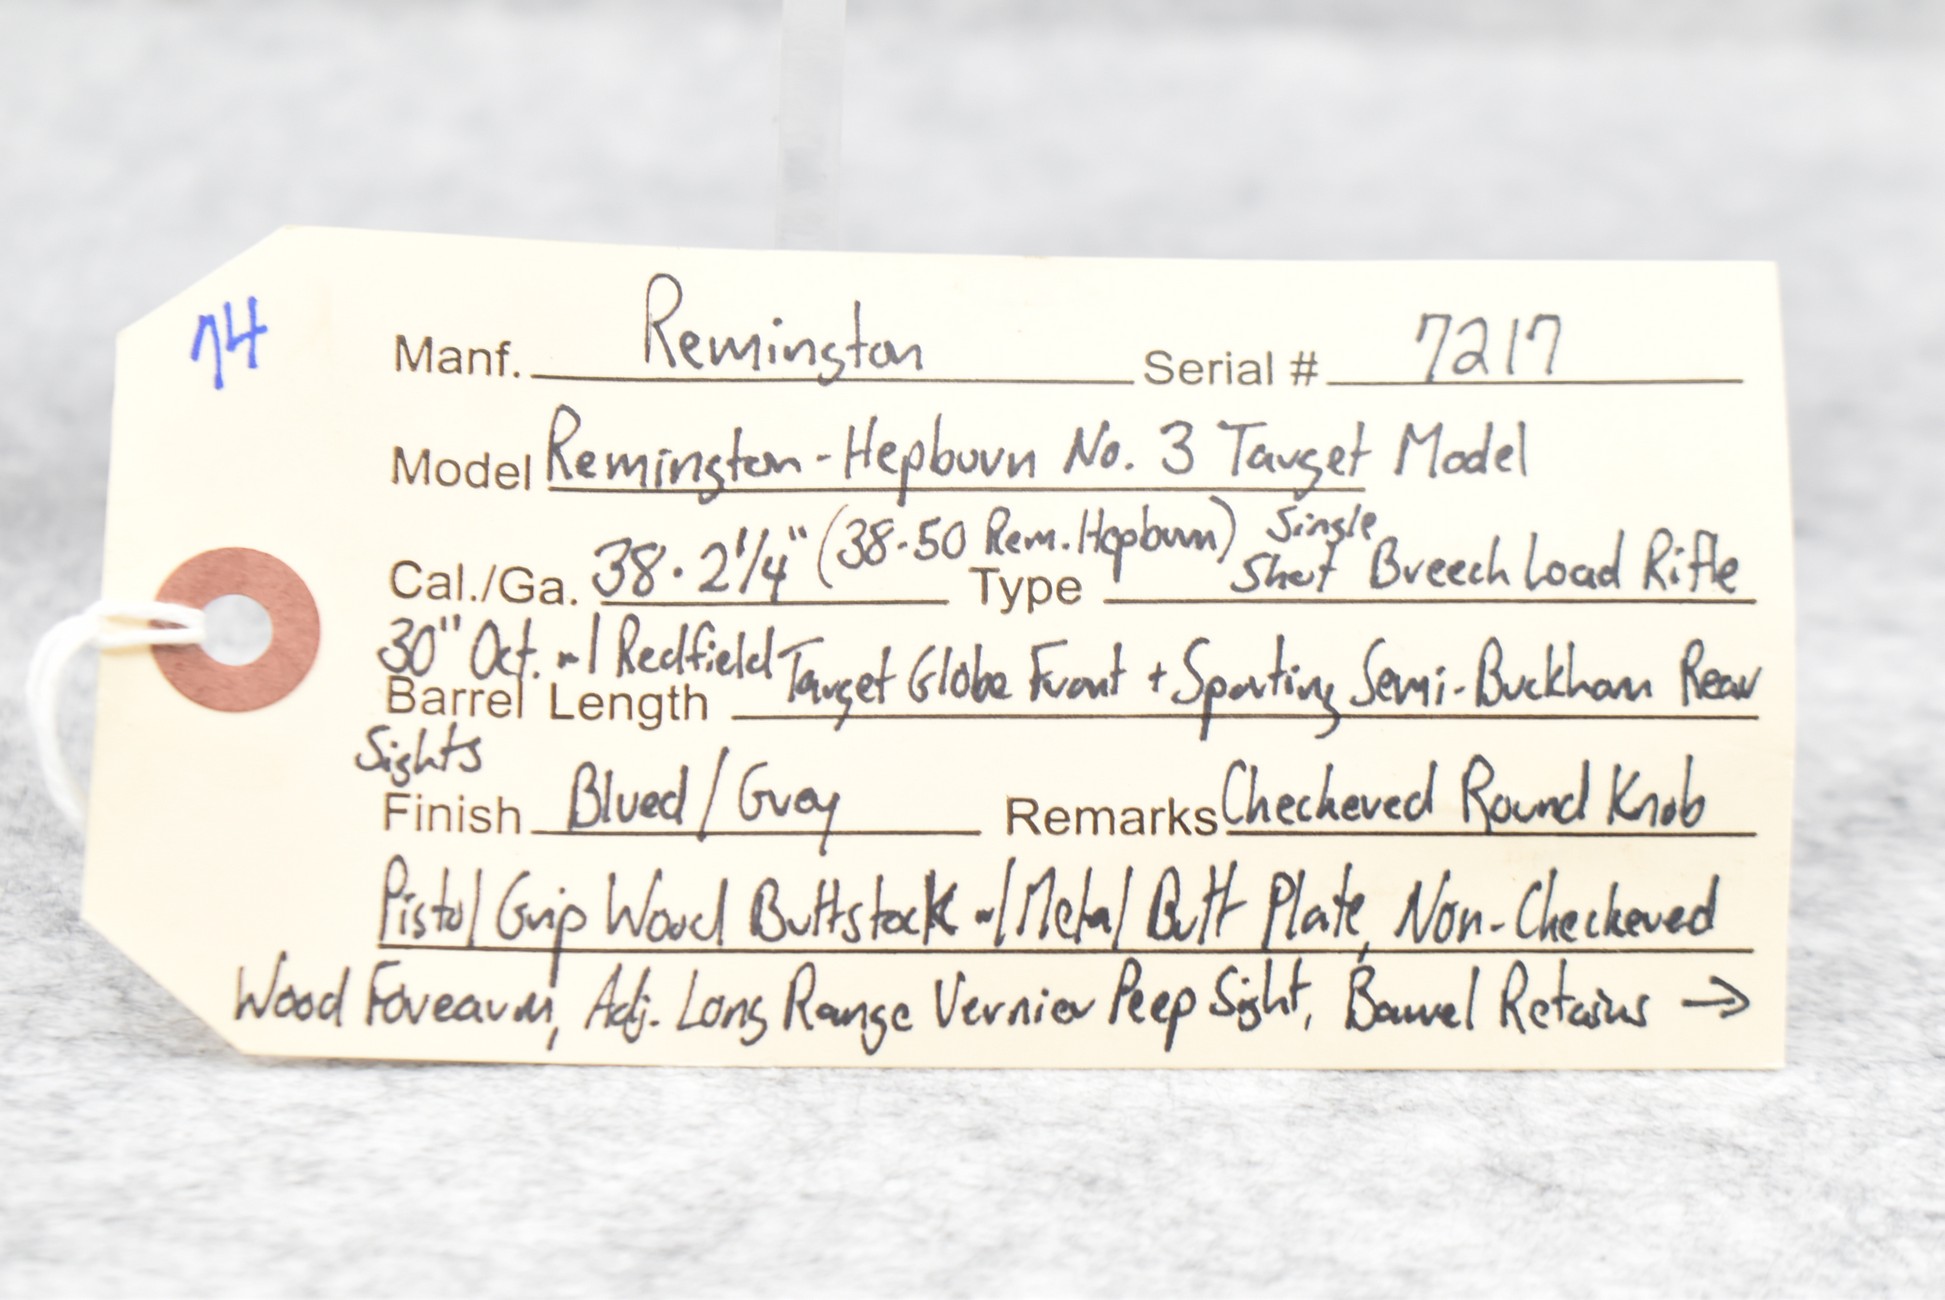 74
Manf. Remington Serial # 7217
Model Remington-Hepburn No. 3 Target Model
Cal./Ga. 38 · 2 1/4" (38-50 Rem. Hepburn) Type Single Shot Breech Load Rifle
30" Oct. w/ Redfield Target Globe Front + Sporting Semi-Buckhorn Rear
Barrel Length
Sights
Finish Blued / Gray Remarks Checkered Round Knob
Pistol Grip Wood Buttstock w/ Metal Butt Plate, Non-Checkered
Wood Forearm, Adj. Long Range Vernier Peep Sight, Barrel Retains →